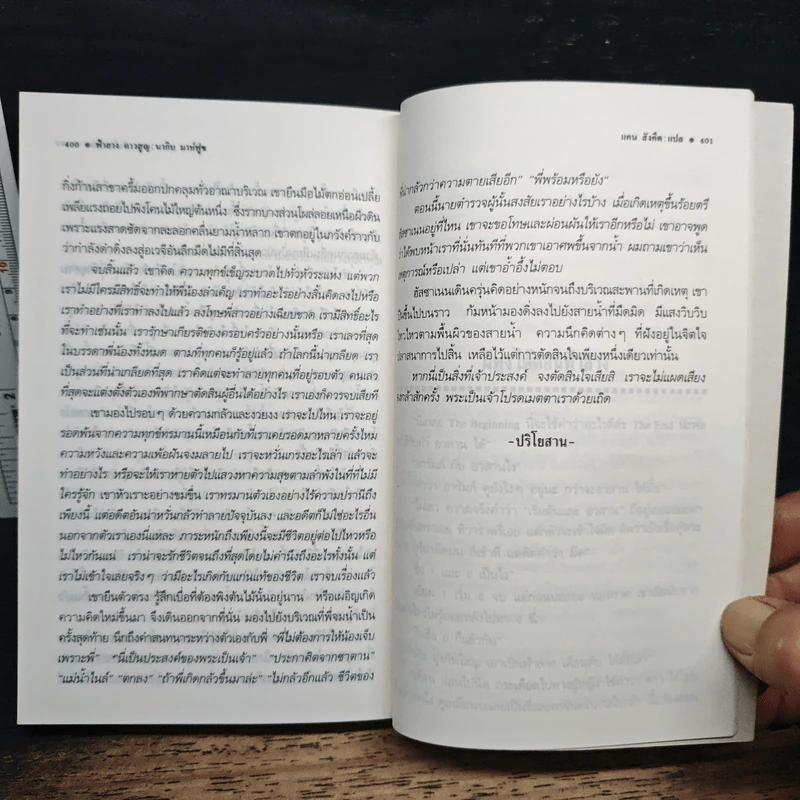 ๔๐๐ ● ฟ้าสาง ดาวสูญ : นากิบ มาห์ฟูซ
กิ่งก้านสาขาครึ้มออกปกคลุมทั่วอาณาบริเวณ เขายืนมือไม้ตกอ่อนเปลี้ย
เพลียแรงถอยไปพิงโคนไม้ใหญ่ต้นหนึ่ง ซึ่งรากบางส่วนโผล่ลอยเหนือผิวดิน
เพราะแรงสาดซัดจากละลอกคลื่นยามน้ำหลาก เขาตกอยู่ในภวังค์ราวกับ
ว่ากำลังดำดิ่งลงสู่อเวจีอันลึกมืดไม่มีที่สิ้นสุด
จบสิ้นแล้ว เขาคิด ความทุกข์เข็ญระบาดไปทั่วหัวระแหง แต่พวก
เราไม่มีใครมีสิทธิ์จะทำให้พี่น้องลำเค็ญ เราทำอะไรอย่างสิ้นคิดลงไปหรือ
เราทำอย่างที่เราทำลงไปแล้ว ลงโทษพี่สาวอย่างเฉียบขาด เรามีสิทธิ์อะไร
ที่จะทำเช่นนั้น เรารักษาเกียรติของครอบครัวอย่างนั้นหรือ เราเลวที่สุด
ในบรรดาพี่น้องทั้งหมด ตามที่ทุกคนก็รู้อยู่แล้ว ถ้าโลกนี้น่าเกลียด เรา
เป็นส่วนที่น่าเกลียดที่สุด เราคิดแต่จะทำลายทุกคนที่อยู่รอบตัว คนเลว
ที่สุดจะแต่งตั้งตัวเองพิพากษาตัดสินผู้อื่นได้อย่างไร เราเองก็ควรจบเสียที
เขามองไปรอบๆ ด้วยความกลัวและงวยงง เราจะไปไหน เราจะอยู่
รอดพ้นจากความทุกข์ทรมานนี้เหมือนกับที่เราเคยรอดมาหลายครั้งไหม
ความหวังและความเพ้อฝันจงมลายไป เราจะหวั่นเกรงอะไรเล่า แล้วจะ
ทำอย่างไร หรือจะให้เราหายตัวไปแสวงหาความสุขตามลำพังในที่ที่ไม่มี
ใครรู้จัก เขาหัวเราะอย่างขมขื่น เราทรมานตัวเองอย่างไร้ความปรานีถึง
เพียงนี้ แต่อดีตอันน่าหวั่นกลัวทำลายปัจจุบันลง และอดีตก็ไม่ใช่อะไรอื่น
นอกจากตัวเรานี่แหละ ภาระหนักถึงเพียงนี้จะมีชีวิตอยู่ต่อไปไหวหรือ
ไม่ไหวกันแน่ เราน่าจะรักชีวิตจนถึงที่สุดโดยไม่คำนึงถึงอะไรทั้งนั้น แต่
เราไม่เข้าใจเลยจริงๆ ว่ามีอะไรเกิดกับแก่นแท้ของชีวิต เราจบเรื่องแล้ว
เขายืนตัวตรง รู้สึกเบื่อที่ต้องพิงต้นไม้นั้นอยู่นาน หรือเผอิญเกิด
ความคิดใหม่ขึ้นมา จึงเดินออกจากที่นั่น มองไปยังบริเวณที่พี่จมน้ำเป็น
ครั้งสุดท้าย นึกถึงคำสนทนาระหว่างตัวเองกับพี่ "พี่ไม่ต้องการให้น้องเจ็บ
เพราะพี่" "นี่เป็นประสงค์ของพระเป็นเจ้า" "ประกาศิตจากซาตาน"
"แม่น้ำไนล์" "ตกลง" "ถ้าพี่เกิดกลัวขึ้นมาล่ะ" "ไม่กลัวอีกแล้ว ชีวิตของ
แคน สังคีต : แปล ● ๔๐๑
พี่น่ากลัวกว่าความตายเสียอีก" "พี่พร้อมหรือยัง"
ตอนนี้นายตำรวจผู้นั้นสงสัยเราอย่างไรบ้าง เมื่อเกิดเหตุขึ้นร้อยตรี
ฮัสซาเนนอยู่ที่ไหน เขาจะขอโทษและผ่อนผันให้เราอีกหรือไม่ เขาอาจพูด
ว่าได้พบหน้าเราที่นั่นทันทีที่พวกเขาเอาศพขึ้นจากน้ำ ผมถามเขาว่าเห็น
เหตุการณ์หรือเปล่า แต่เขาอ้ำอึ้งไม่ตอบ
ฮัสซาเนนเดินครุ่นคิดอย่างหนักจนถึงบริเวณสะพานที่เกิดเหตุ เขา
ปีนขึ้นไปบนราว ก้มหน้ามองดิ่งลงไปยังสายน้ำที่มืดมิด มีแสงวิบวิบ
ไหวไหวตามพื้นผิวของสายน้ำ ความนึกคิดต่างๆ ที่ฝังอยู่ในจิตใจ
ปลาสนาการไปสิ้น เหลือไว้แต่การตัดสินใจเพียงหนึ่งเดียวเท่านั้น
หากนี่เป็นสิ่งที่เจ้าประสงค์ จงตัดสินใจเสียสิ เราจะไม่แผดเสียง
จงกล้าสักครั้ง พระเป็นเจ้าโปรดเมตตาเราด้วยเถิด
-ปริโยสาน-